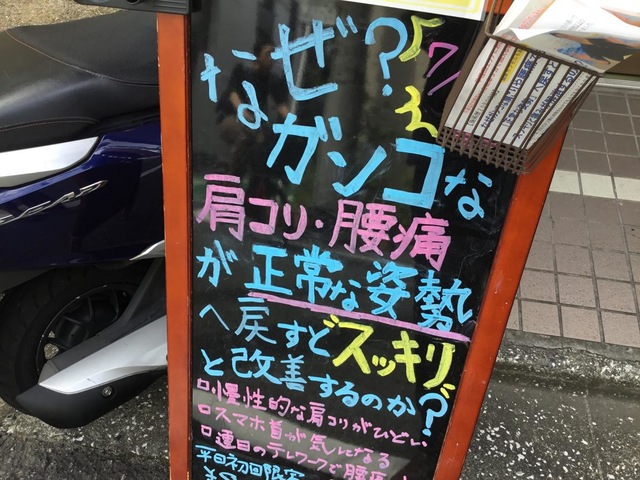 なぜ?
ガンコな
肩コリ・腰痛
が正常な姿勢
へ戻すどスッキリ
と改善するのか?
□慢性的な肩コリがひどい
□スマホ首が気になる
□連日のテレワークで腰痛
平日初回限定